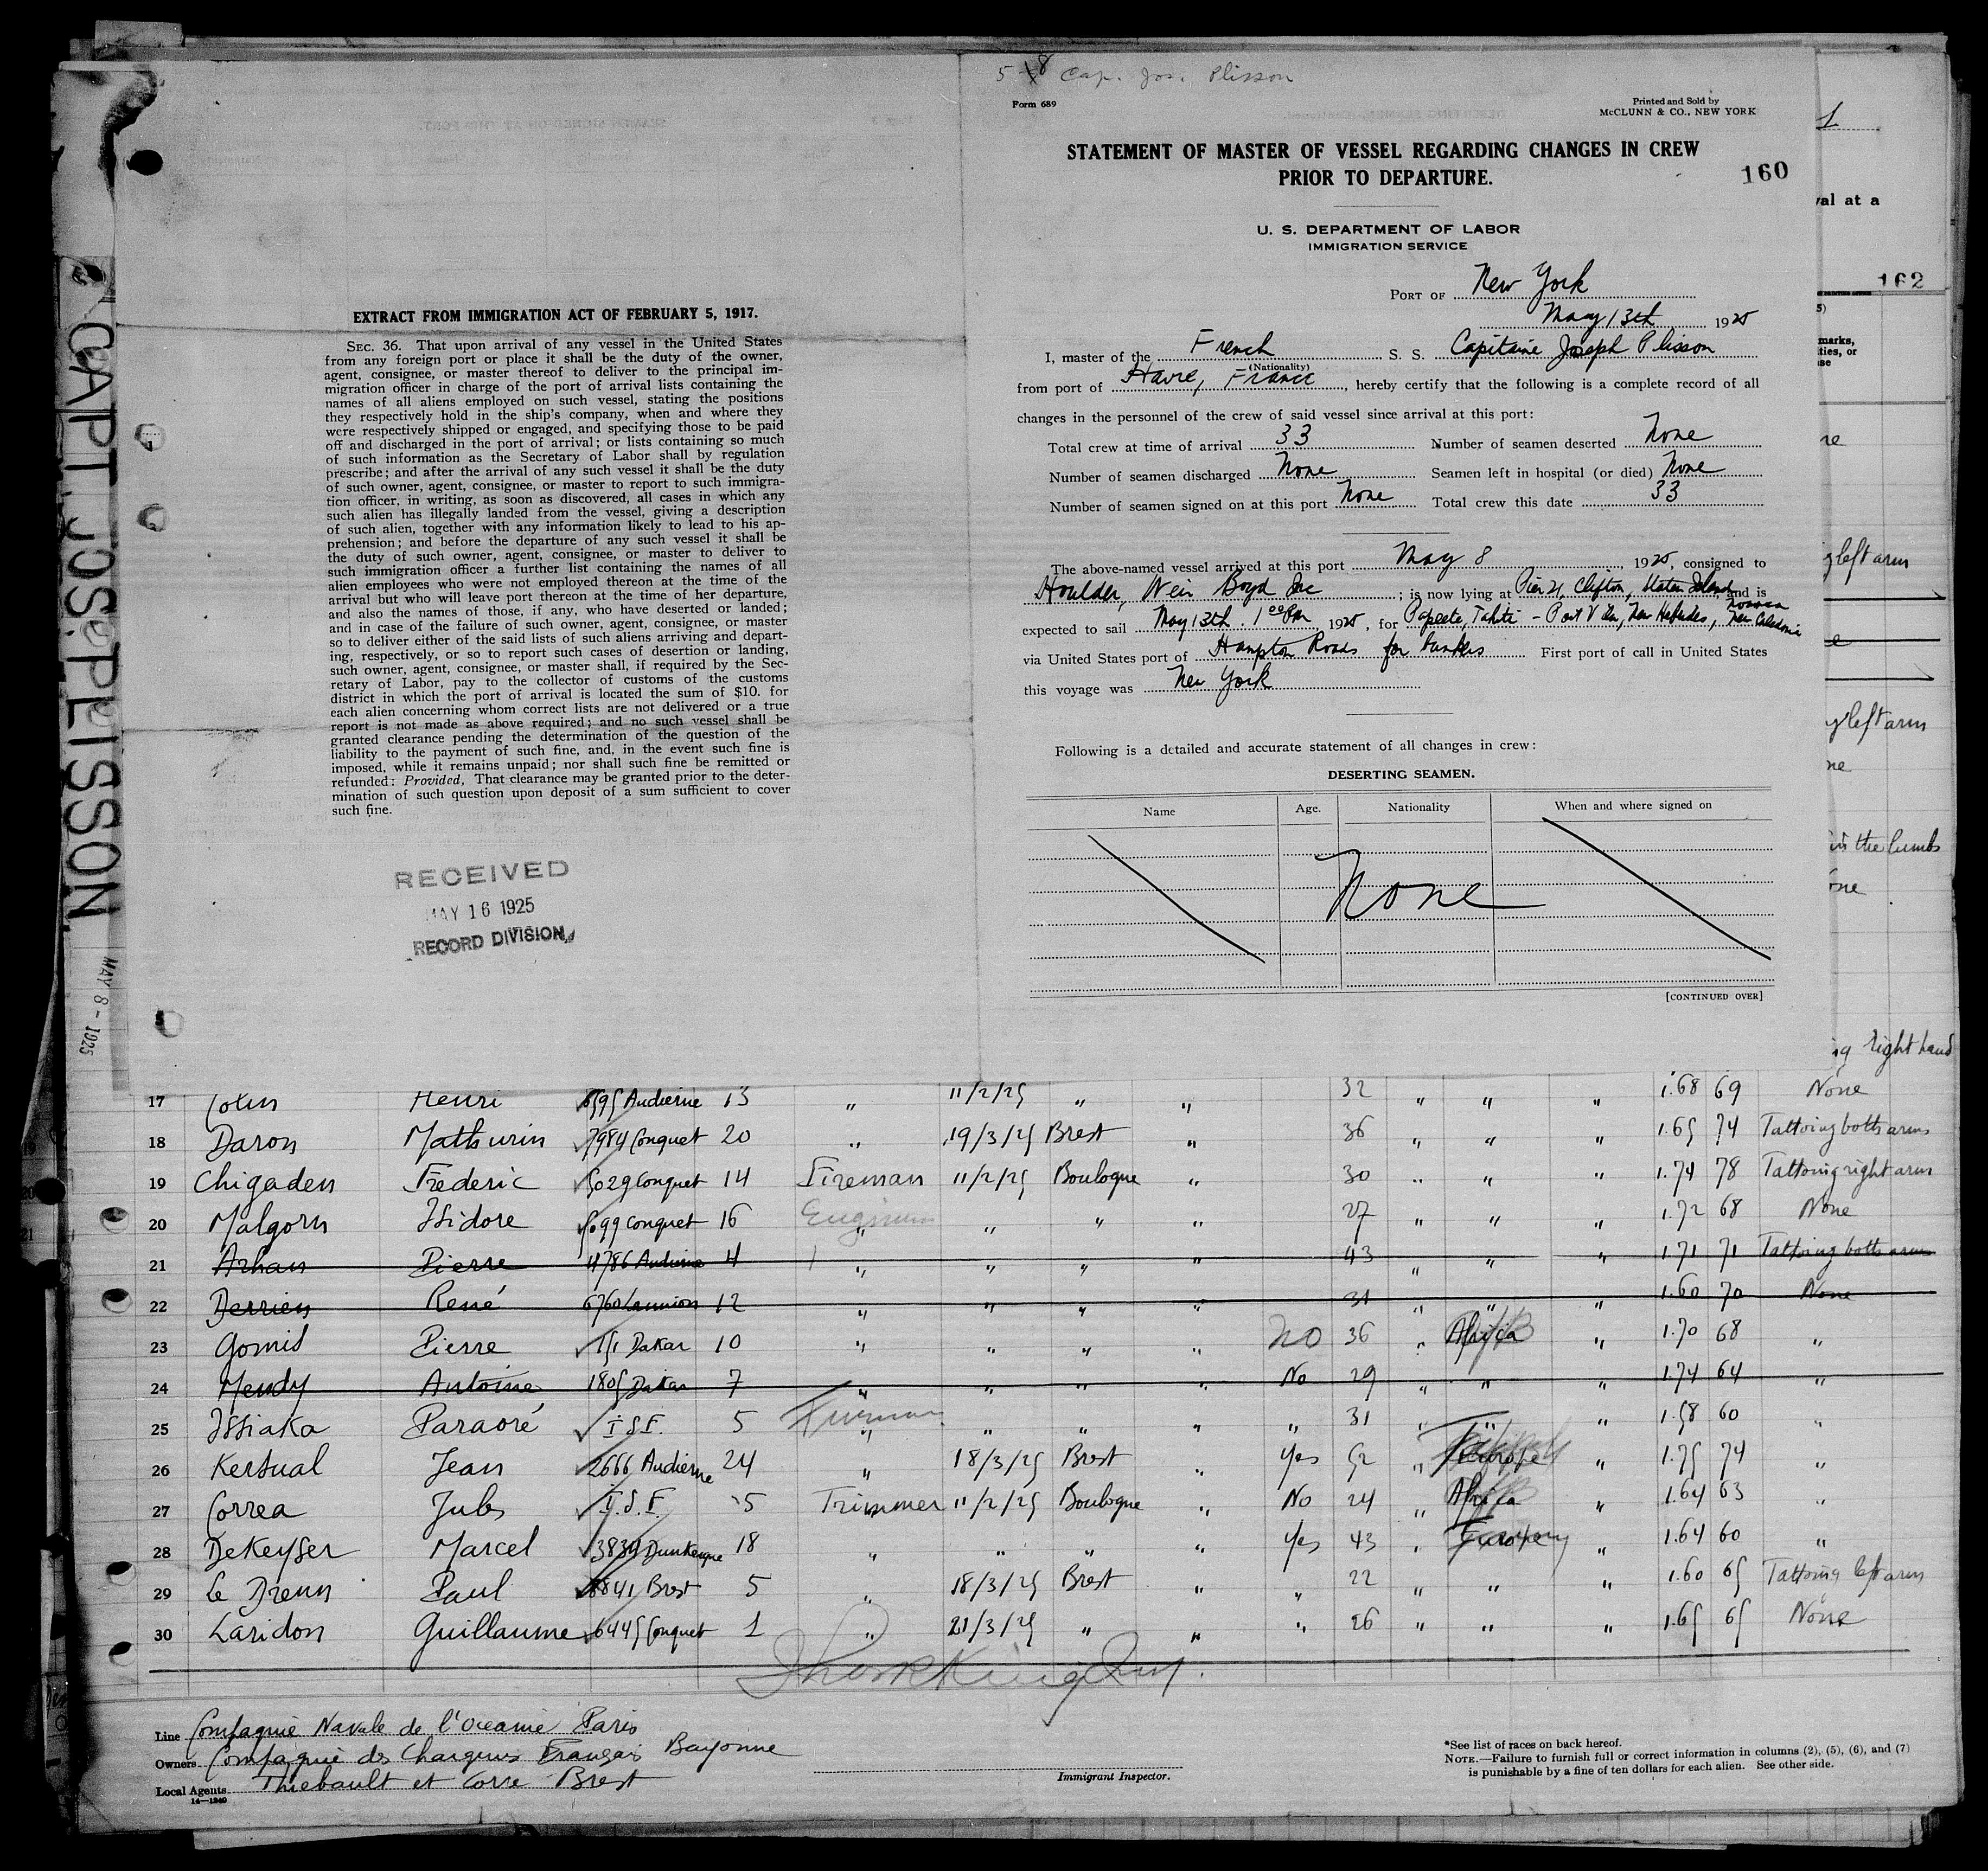 5-8 Cap. Jos. Plisson
Form 689
Printed and Sold by
McCLUNN & CO., NEW YORK
STATEMENT OF MASTER OF VESSEL REGARDING CHANGES IN CREW
PRIOR TO DEPARTURE.
160
U. S. DEPARTMENT OF LABOR
IMMIGRATION SERVICE
PORT OF New York
May 13th 1925
I, master of the French S. S. Capitaine Joseph Plisson
(Nationality)
from port of Havre, France, hereby certify that the following is a complete record of all
changes in the personnel of the crew of said vessel since arrival at this port:
Total crew at time of arrival 33 Number of seamen deserted None
Number of seamen discharged None Seamen left in hospital (or died) None
Number of seamen signed on at this port None Total crew this date 33
The above-named vessel arrived at this port May 8, 1925, consigned to
Houlder, Weir Boyd Inc; is now lying at Pier 21, Clifton, Staten Island and is
expected to sail May 13th. 1 00 PM, 1925, for Papeete, Tahiti - Port Vila, New Hebrides, Noumea New Caledonia
via United States port of Hampton Roads for bunkers First port of call in United States
this voyage was New York
Following is a detailed and accurate statement of all changes in crew:
DESERTING SEAMEN.
Name Age. Nationality When and where signed on
None
[CONTINUED OVER]
EXTRACT FROM IMMIGRATION ACT OF FEBRUARY 5, 1917.
SEC. 36. That upon arrival of any vessel in the United States
from any foreign port or place it shall be the duty of the owner,
agent, consignee, or master thereof to deliver to the principal im-
migration officer in charge of the port of arrival lists containing the
names of all aliens employed on such vessel, stating the positions
they respectively hold in the ship's company, when and where they
were respectively shipped or engaged, and specifying those to be paid
off and discharged in the port of arrival; or lists containing so much
of such information as the Secretary of Labor shall by regulation
prescribe; and after the arrival of any such vessel it shall be the duty
of such owner, agent, consignee, or master to report to such immigra-
tion officer, in writing, as soon as discovered, all cases in which any
such alien has illegally landed from the vessel, giving a description
of such alien, together with any information likely to lead to his ap-
prehension; and before the departure of any such vessel it shall be
the duty of such owner, agent, consignee, or master to deliver to
such immigration officer a further list containing the names of all
alien employees who were not employed thereon at the time of the
arrival but who will leave port thereon at the time of her departure,
and also the names of those, if any, who have deserted or landed;
and in case of the failure of such owner, agent, consignee, or master
so to deliver either of the said lists of such aliens arriving and depart-
ing, respectively, or so to report such cases of desertion or landing,
such owner, agent, consignee, or master shall, if required by the Sec-
retary of Labor, pay to the collector of customs of the customs
district in which the port of arrival is located the sum of $10. for
each alien concerning whom correct lists are not delivered or a true
report is not made as above required; and no such vessel shall be
granted clearance pending the determination of the question of the
liability to the payment of such fine, and, in the event such fine is
imposed, while it remains unpaid; nor shall such fine be remitted or
refunded: Provided, That clearance may be granted prior to the deter-
mination of such question upon deposit of a sum sufficient to cover
such fine.
RECEIVED
MAY 16 1925
RECORD DIVISION
CAPT. JOSEPH PLISSON
MAY 8 - 1925
1
val at a
162
left arm
left arm
in the lumbs
right hand
17 Colin Henri Audierne 13 " 11/2/25 " " 32 " " " 1.68 69 None
18 Daron Mathurin 7984 Conquet 20 " 19/3/25 Brest " 36 " " " 1.65 74 Tattoing both arms
19 Chigaden Frederic 5029 Conquet 14 Fireman 11/2/25 Boulogne " 30 " " " 1.74 78 Tattoing right arm
20 Malgorn Isidore 5099 Conquet 16 " " " " 27 " " " 1.72 68 None
21 Arhan Pierre 4786 Audierne 4 " " " " 43 " " " 1.71 71 Tattoing both arms
22 Derrien René 6760 Lannion 12 " " " " 31 " " " 1.60 70 None
23 Gomis Pierre 151 Dakar 10 " " " " No 36 " Africa " 1.70 68 "
24 Mendy Antoine 1805 Dakar 7 " " " " No 29 " " " 1.74 64 "
25 Issiaka Paraoré I.S.F. 5 Fireman " " " " 31 " " " 1.58 60 "
26 Kersual Jean 2666 Audierne 24 " 18/3/25 Brest " Yes 52 " Europe " 1.75 74 "
27 Correa Jules I.S.F. 5 Trimmer 11/2/25 Boulogne " No 24 " Africa " 1.64 63 "
28 DeKeyser Marcel 3834 Dunkerque 18 " " " " Yes 43 " European " 1.64 60 "
29 Le Drenn Paul 8841 Brest 5 " 18/3/25 Brest " " 22 " " " 1.60 65 Tattoing left arm
30 Laridon Guillaume 6445 Conquet 1 " 21/3/25 " " " 26 " " " 1.65 65 None
Line Compagnie Navale de l'Oceanie Paris
Owners Compagnie des Chargeurs Français Bayonne
Local Agents Thiebault et Corre Brest
14—1240
Immigrant Inspector.
*See list of races on back hereof.
NOTE.—Failure to furnish full or correct information in columns (2), (5), (6), and (7)
is punishable by a fine of ten dollars for each alien. See other side.